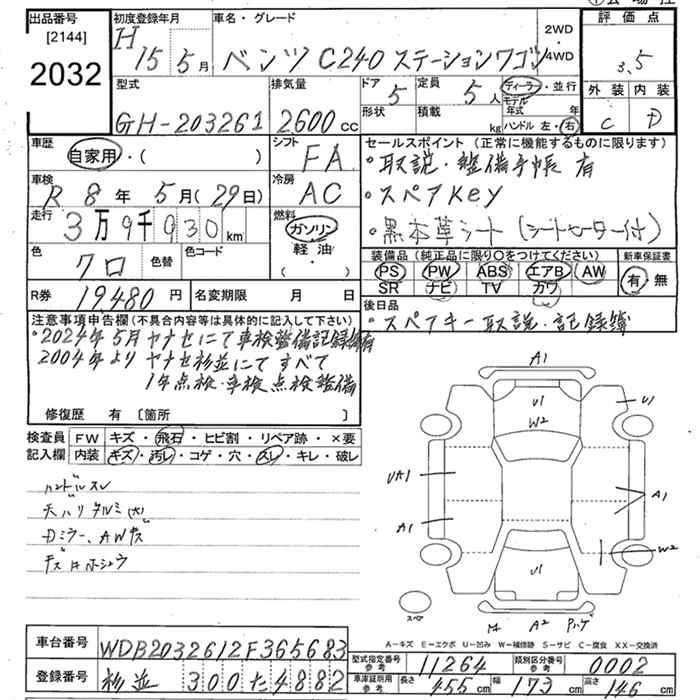 出品番号
[2144]
2032
初度登録年月
H 15 5月
車名・グレード
ベンツ C240 ステーションワゴン
2WD
4WD
評価点
3.5
外装 内装
C D
型式
GH-203261
排気量
2600cc
ドア 5
定員 5人
形状
積載 kg
ディーラー・並行
モデル年式 年
ハンドル 左・右
車歴
自家用・( )
シフト
FA
車検
R 8年 5月(29日)
冷房
AC
走行
3万9千930km
燃料
ガソリン
軽油・
色
クロ
色替
色コード
R券 19480円
名変期限 月 日
セールスポイント(正常に機能するものに限ります)
・取説・整備手帳 有
・スペアKey
・黒本革シート(シートヒーター付)
装備品(純正品に限り○をつけてください)
PS PW ABS エアB AW
SR ナビ TV カワ
新車保証書
有 無
後日品
・スペアキー 取説・記録簿
注意事項申告欄(不具合内容等は具体的に記入して下さい)
・2024年5月ヤナセにて車検整備記録簿有
2004年より ヤナセ杉並にて すべて
1年点検・車検 点検整備
修復歴 有 〔箇所 〕
検査員記入欄
FW キズ・飛石・ヒビ割・リペア跡・×要
内装 キズ・汚レ・コゲ・穴・スレ・キレ・破レ
ハンドルスレ
天ハリタルミ(大)
Dミラー、AWキズ
A1
U1
W2
U1
UA1
A1
A1
W2
U1
スペア
A2
A-キズ E-エクボ U-凹み W-補修跡 S-サビ C-腐食 XX-交換済
車台番号 WDB2032612F365683
登録番号 杉並 300た4882
型式指定番号 参考 11264
類別区分番号 参考 0002
車庫証明用 参考 長さ 455cm 幅 173cm 高さ 146cm